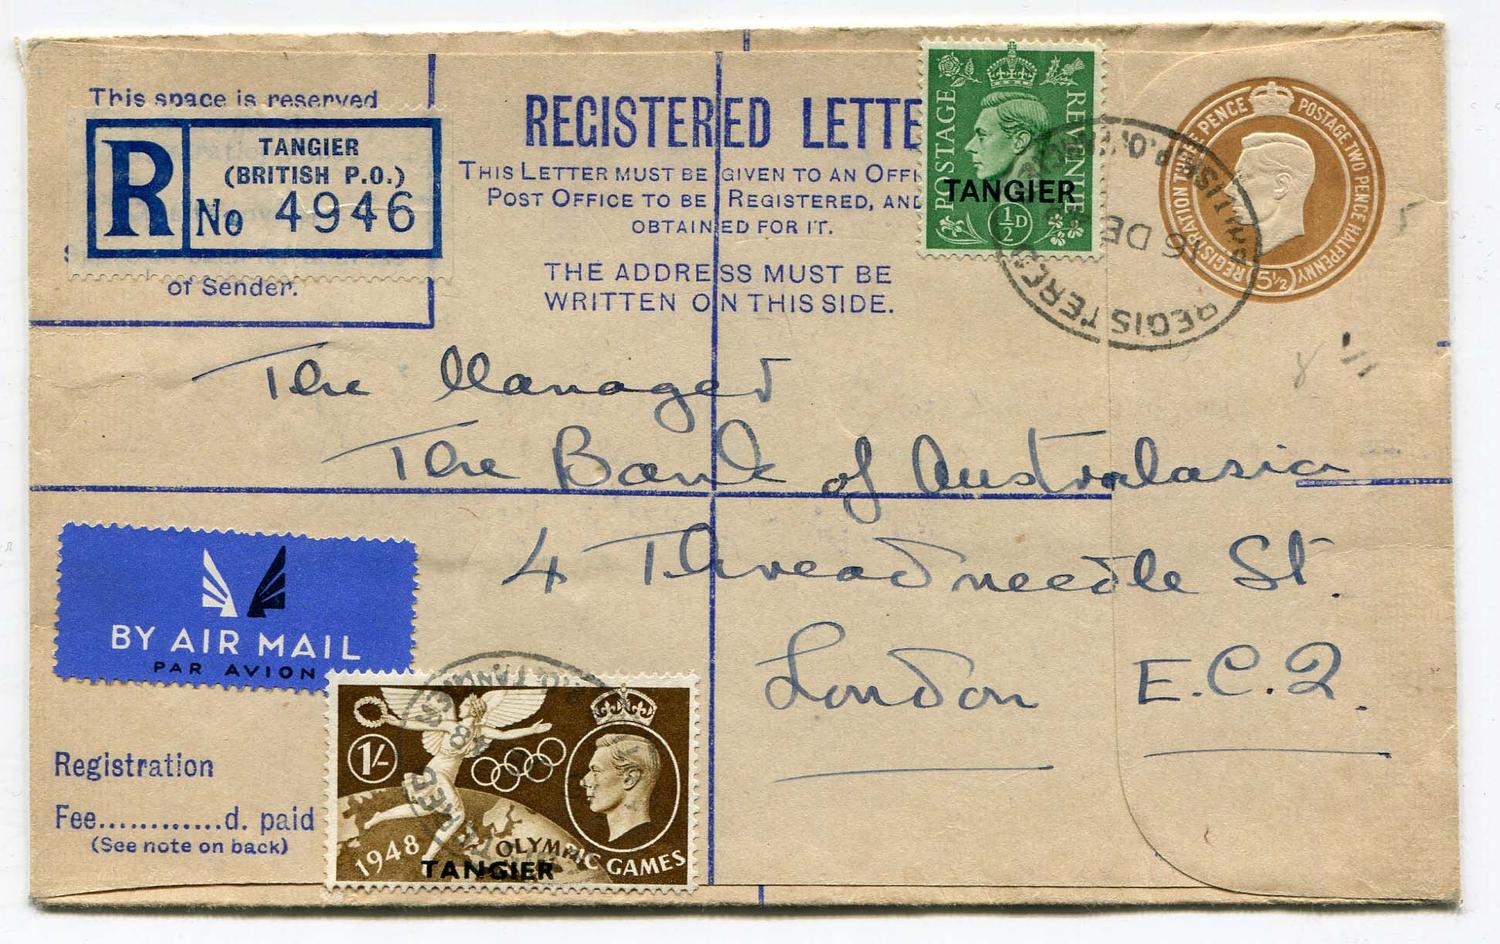 This space is reserved
R
TANGIER
(BRITISH P.O.)
No 4946
of Sender.
REGISTERED LETTE
THIS LETTER MUST BE GIVEN TO AN OFFI
POST OFFICE TO BE REGISTERED, AND
OBTAINED FOR IT.
THE ADDRESS MUST BE
WRITTEN ON THIS SIDE.
POSTAGE
REVENUE
TANGIER
½D
REGISTERED
16 DE
REGISTRATION THREE PENCE
POSTAGE TWO PENCE HALFPENNY
5½
The Manager
The Bank of Australasia
4 Threadneedle St.
London E.C.2
BY AIR MAIL
PAR AVION
Registration
Fee............d. paid
(See note on back)
1/-
1948
OLYMPIC GAMES
TANGIER